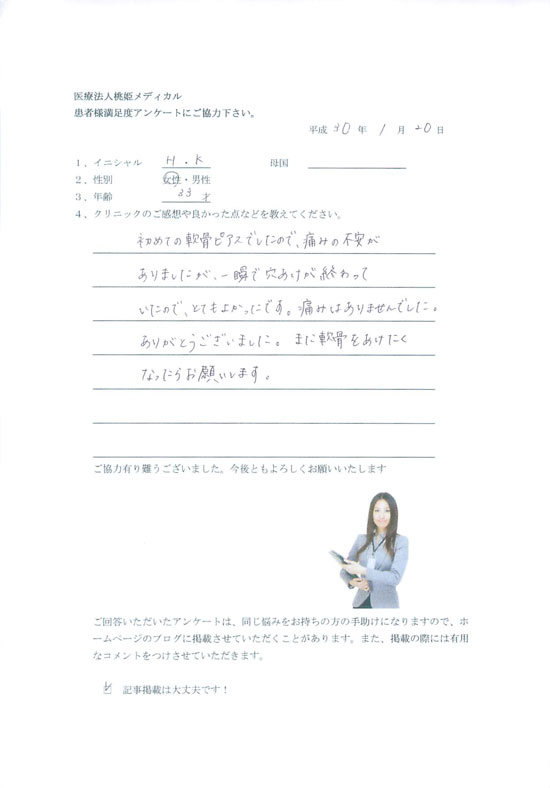 医療法人桃姫メディカル
患者様満足度アンケートにご協力下さい。
平成 30 年 1 月 20 日
1、イニシャル H.K 母国
2、性別 女性・男性
3、年齢 33 才
4、クリニックのご感想や良かった点などを教えてください。
初めての軟骨ピアスでしたので、痛みの不安が
ありましたが、一瞬で穴あけが終わって
いたので、とてもよかったです。痛みはありませんでした。
ありがとうございました。また軟骨をあけたく
なったらお願いします。
ご協力有り難うございました。今後ともよろしくお願いいたします
ご回答いただいたアンケートは、同じ悩みをお持ちの方の手助けになりますので、ホ
ームページのブログに掲載させていただくことがあります。また、掲載の際には有用
なコメントをつけさせていただきます。
記事掲載は大丈夫です！